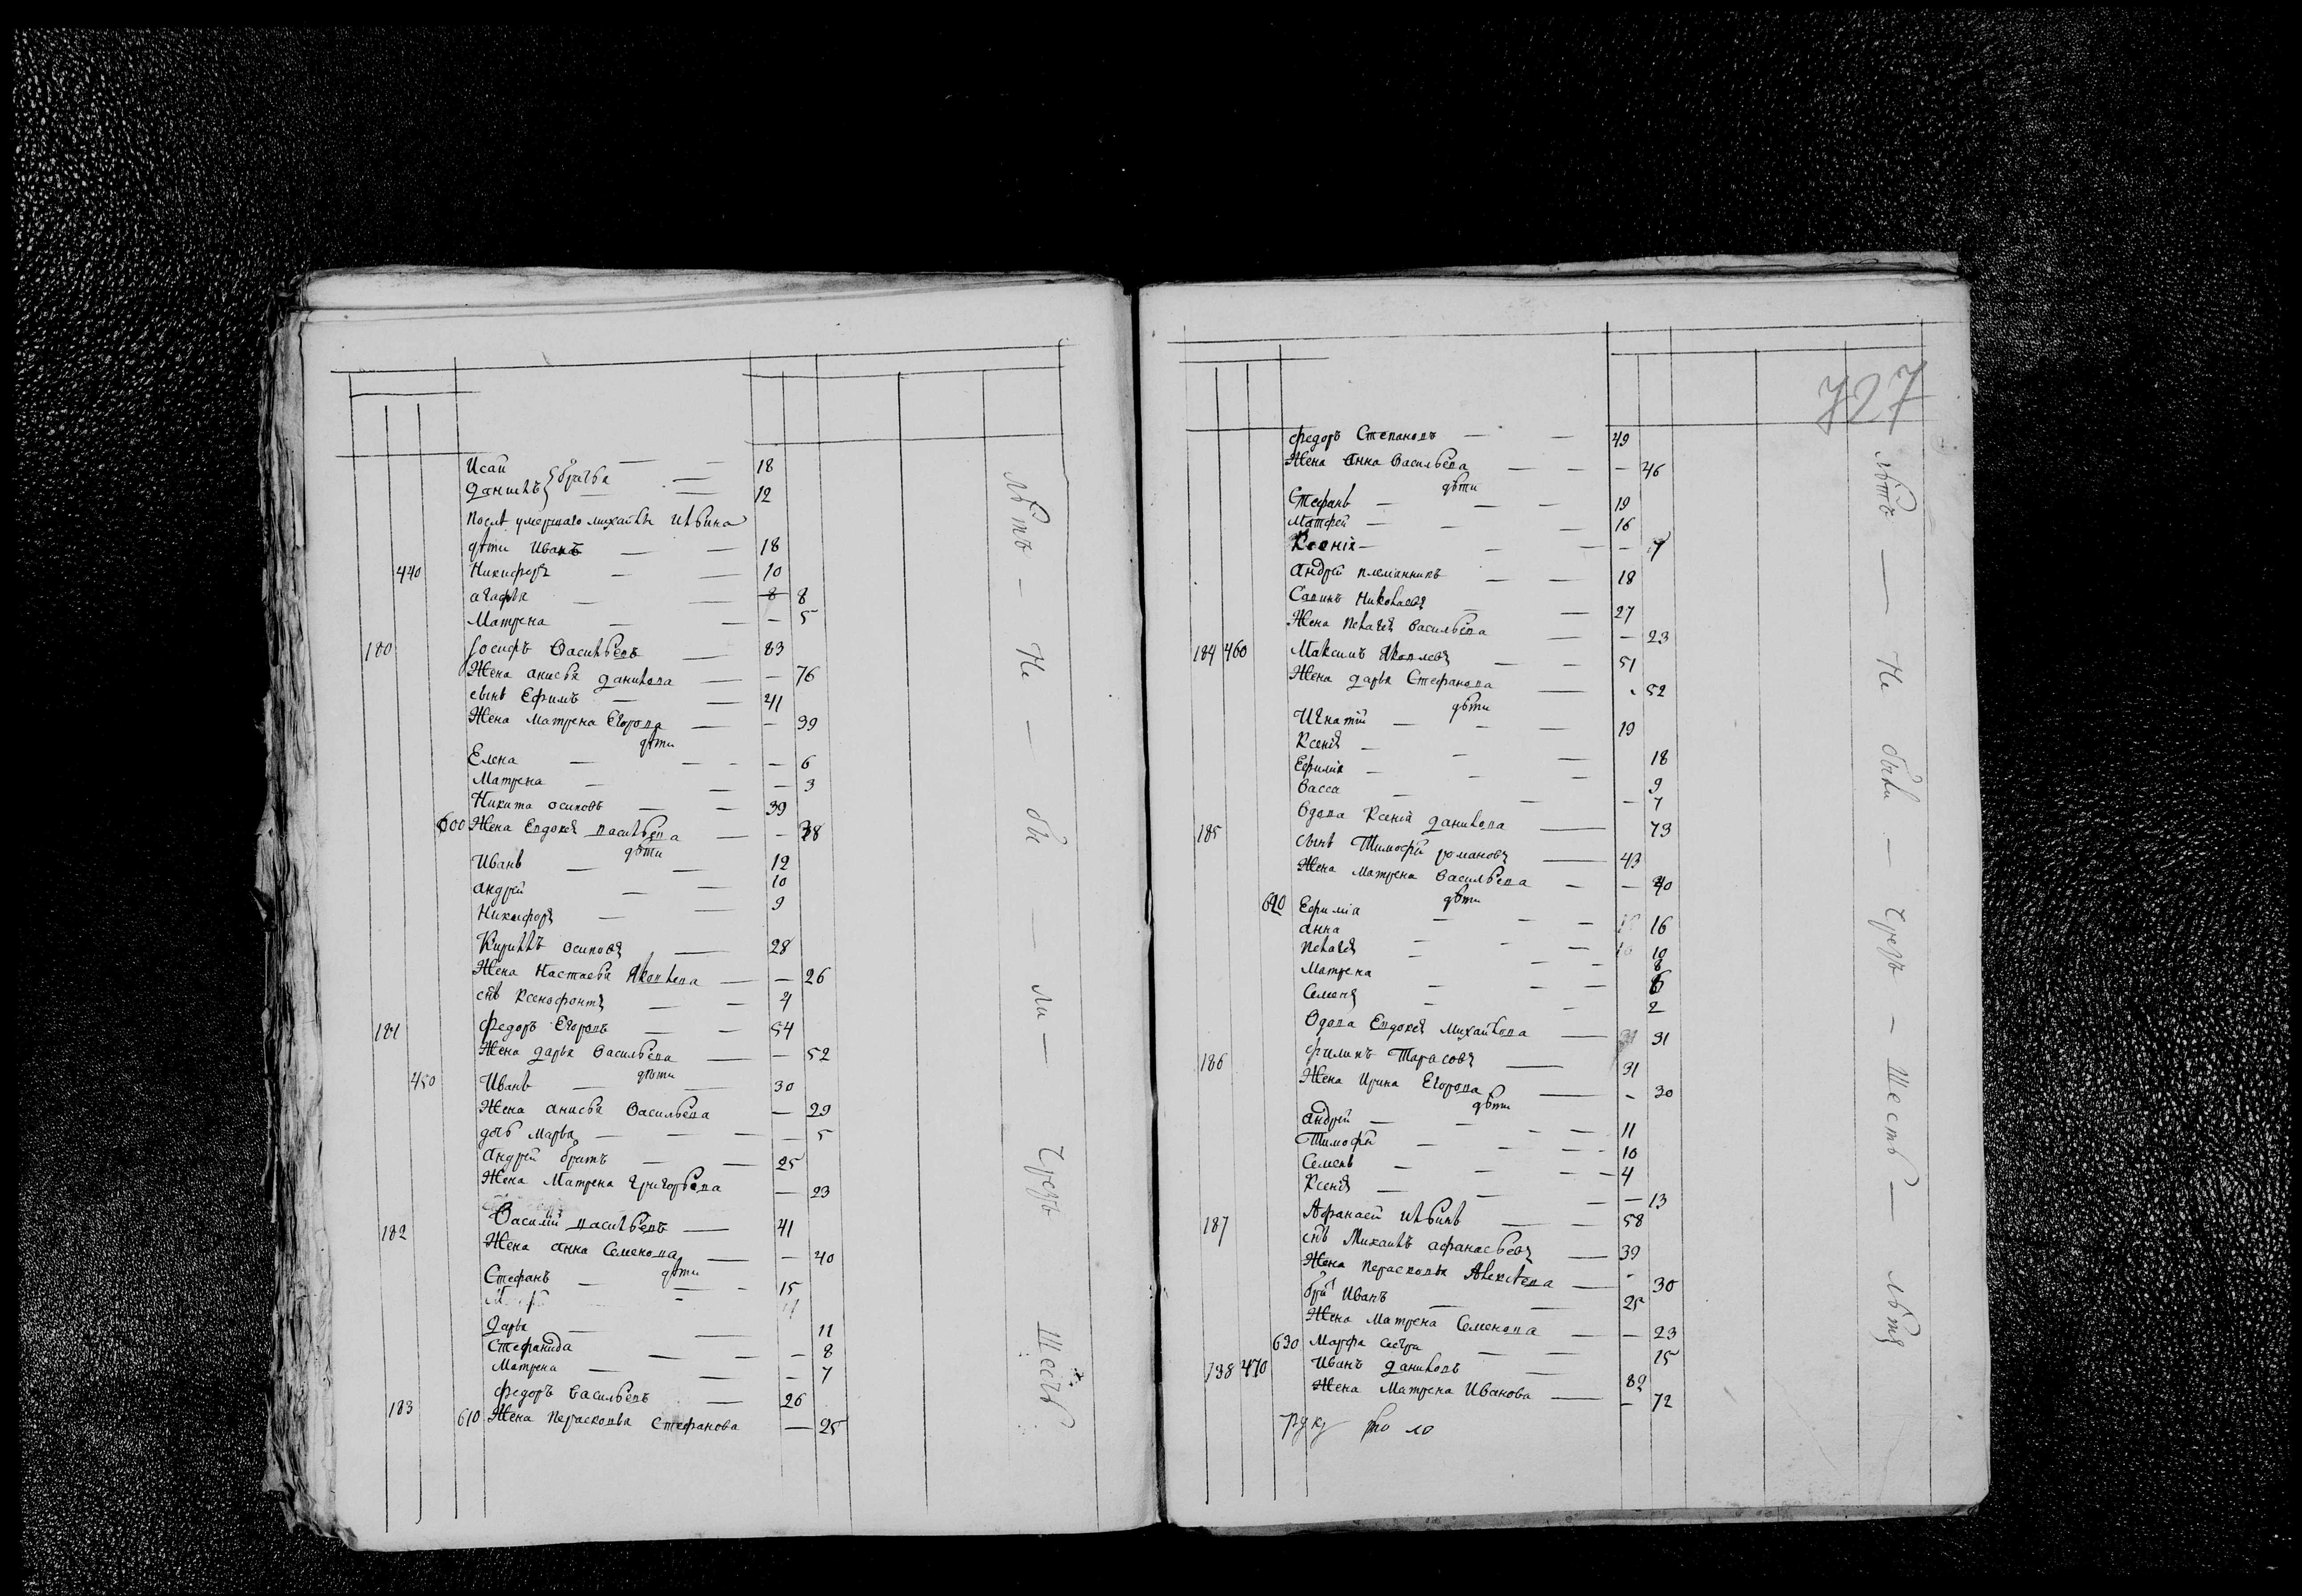 Исаи — — 18
Данилъ } братья — 12
После умершаго михайлы Ильина
дѣти Иванъ — — 18
440 Никифоръ — — 10
агафья — — 8 8
Матрена — — — 5
180 Iосифъ Васильевъ — 83
Жена анисья Данилова — — 76
сынъ Ефимъ — — 41
Жена Матрена Егорова — — 39
дѣти
Елена — — — 6
Матрена — — — 3
Никита осиповъ — — 39
600 Жена Евдокея васильева — — 38
дѣти
Иванъ — — 12
андрей — — 10
Никифоръ — — 9
Кирилъ осиповъ — 28
Жена Настасья Яковлева — — 26
снъ Ксенофонтъ — — 7
181 федоръ Егоровъ — — 54
Жена дарья Васильева — — 52
дѣти
450 Иванъ — — 30
Жена анисья Васильева — 29
дчь Марья — — — 5
андрей братъ — — 25
Жена Матрена григорьева — 23
182 Василий васильевъ — 41
Жена анна Семенова — — 40
дѣти
Стефанъ — — 15
дарья — — 11
Стефанида — — — 8
Матрена — — — 7
183 федоръ Васильевъ — 26
610 Жена Персковья Стефанова — 25
Лѣтъ — Не — бы — ли — Чрезъ Шесть
727
федоръ Степановъ — — 49
Жена анна Васильева — — — 46
дѣти
Стефанъ — — — 19
Матфей — — — 16
Ксения — — — — 7
андрей племянникъ — — 18
Савинъ Николаевъ — — 27
Жена Пелагея Васильева — — 23
184 460 Максимъ Яковлевъ — — 51
Жена дарья Стефанова — 52
дѣти
Игнатий — — — 19
Ксения — — — 18
Ефимия — — — 9
Васса — — — 7
185 Вдова Ксения Данилова — 73
сынъ Тимофей романовъ — 43
Жена Матрена Васильева — — 40
дѣти
620 Ефимiа — — — 16
анна — — — 10
Пелагея — — 8
Матрена — — — 6
Семенъ — — 2
Вдова Евдокея Михайлова — 31
186 филипъ Тарасовъ — 31
Жена Ирина Егорова — - 30
дѣти
андрей — — — 11
Тимофей — — — 10
Семенъ — — — 4
Ксения — — — — 13
187 Афанасей Ильинъ — — 58
снъ Михаилъ афанасьевъ — 39
Жена Персковья Алексѣева — - 30
бр. Иванъ — — 25
Жена Матрена Семенова — — 23
630 Марфа сестра — — 15
198 470 Иванъ Даниловъ — 82
Жена Матрена Иванова — — 72
Лѣтъ — Не были — Чрезъ — Шесть — лѣтъ